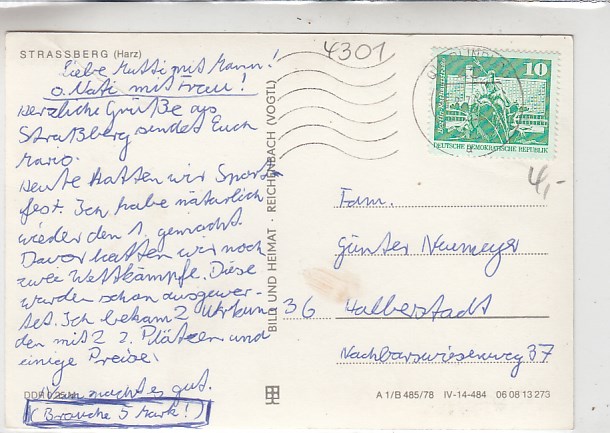 STRASSBERG (Harz)
Liebe Mutti mit Mann!
o. Vati mit Frau!
Herzliche Grüße aus
Straßberg sendet Euch
Mario.
Heute hatten wir Sport-
fest. Ich habe natürlich
wieder den 1. gemacht.
Davor hatten wir noch
zwei Wettkämpfe. Diese
wurden schon ausgewer-
tet. Ich bekam 2 Urkun
den mit 2 2. Plätzen und
einige Preise!
Nun machts gut.
(Brauche 5 Mark!)
DDR
BILD UND HEIMAT · REICHENBACH (VOGTL)
4301
10
DEUTSCHE DEMOKRATISCHE REPUBLIK
4,-
Fam.
Günter Neumeyer
36 Halberstadt
Nachbarswiesenweg 37
A 1/B 485/78 IV-14-484 06 08 13 273